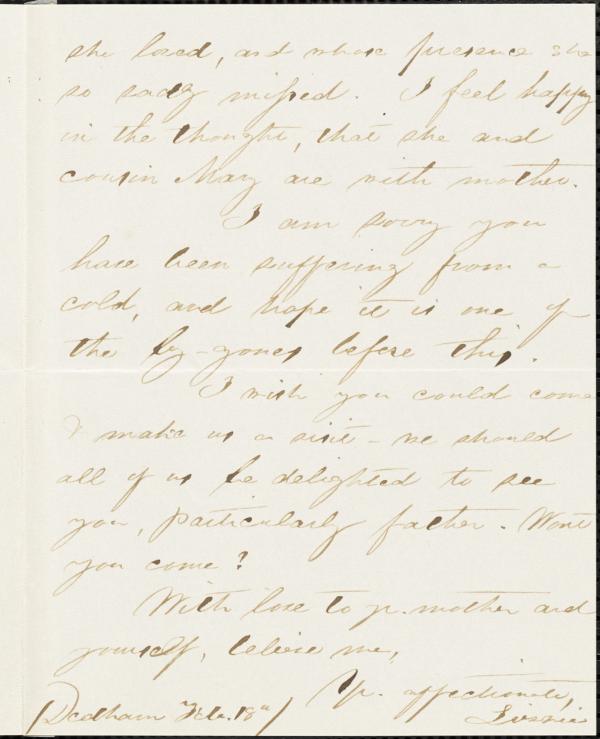 she loved, and whose presence she
so sadly missed. I feel happy
in the thought, that she and
cousin Mary are with mother.
I am sorry you
have been suffering from a
cold, and hope it is one of
the by-gones before this.
I wish you could come
& make us a visit - we should
all of us be delighted to see
you, particularly father. Wont
you come?
With love to yr. mother and
yourself, believe me,
Yr. affectionate,
(Dedham Feb. 18th) Lizzie